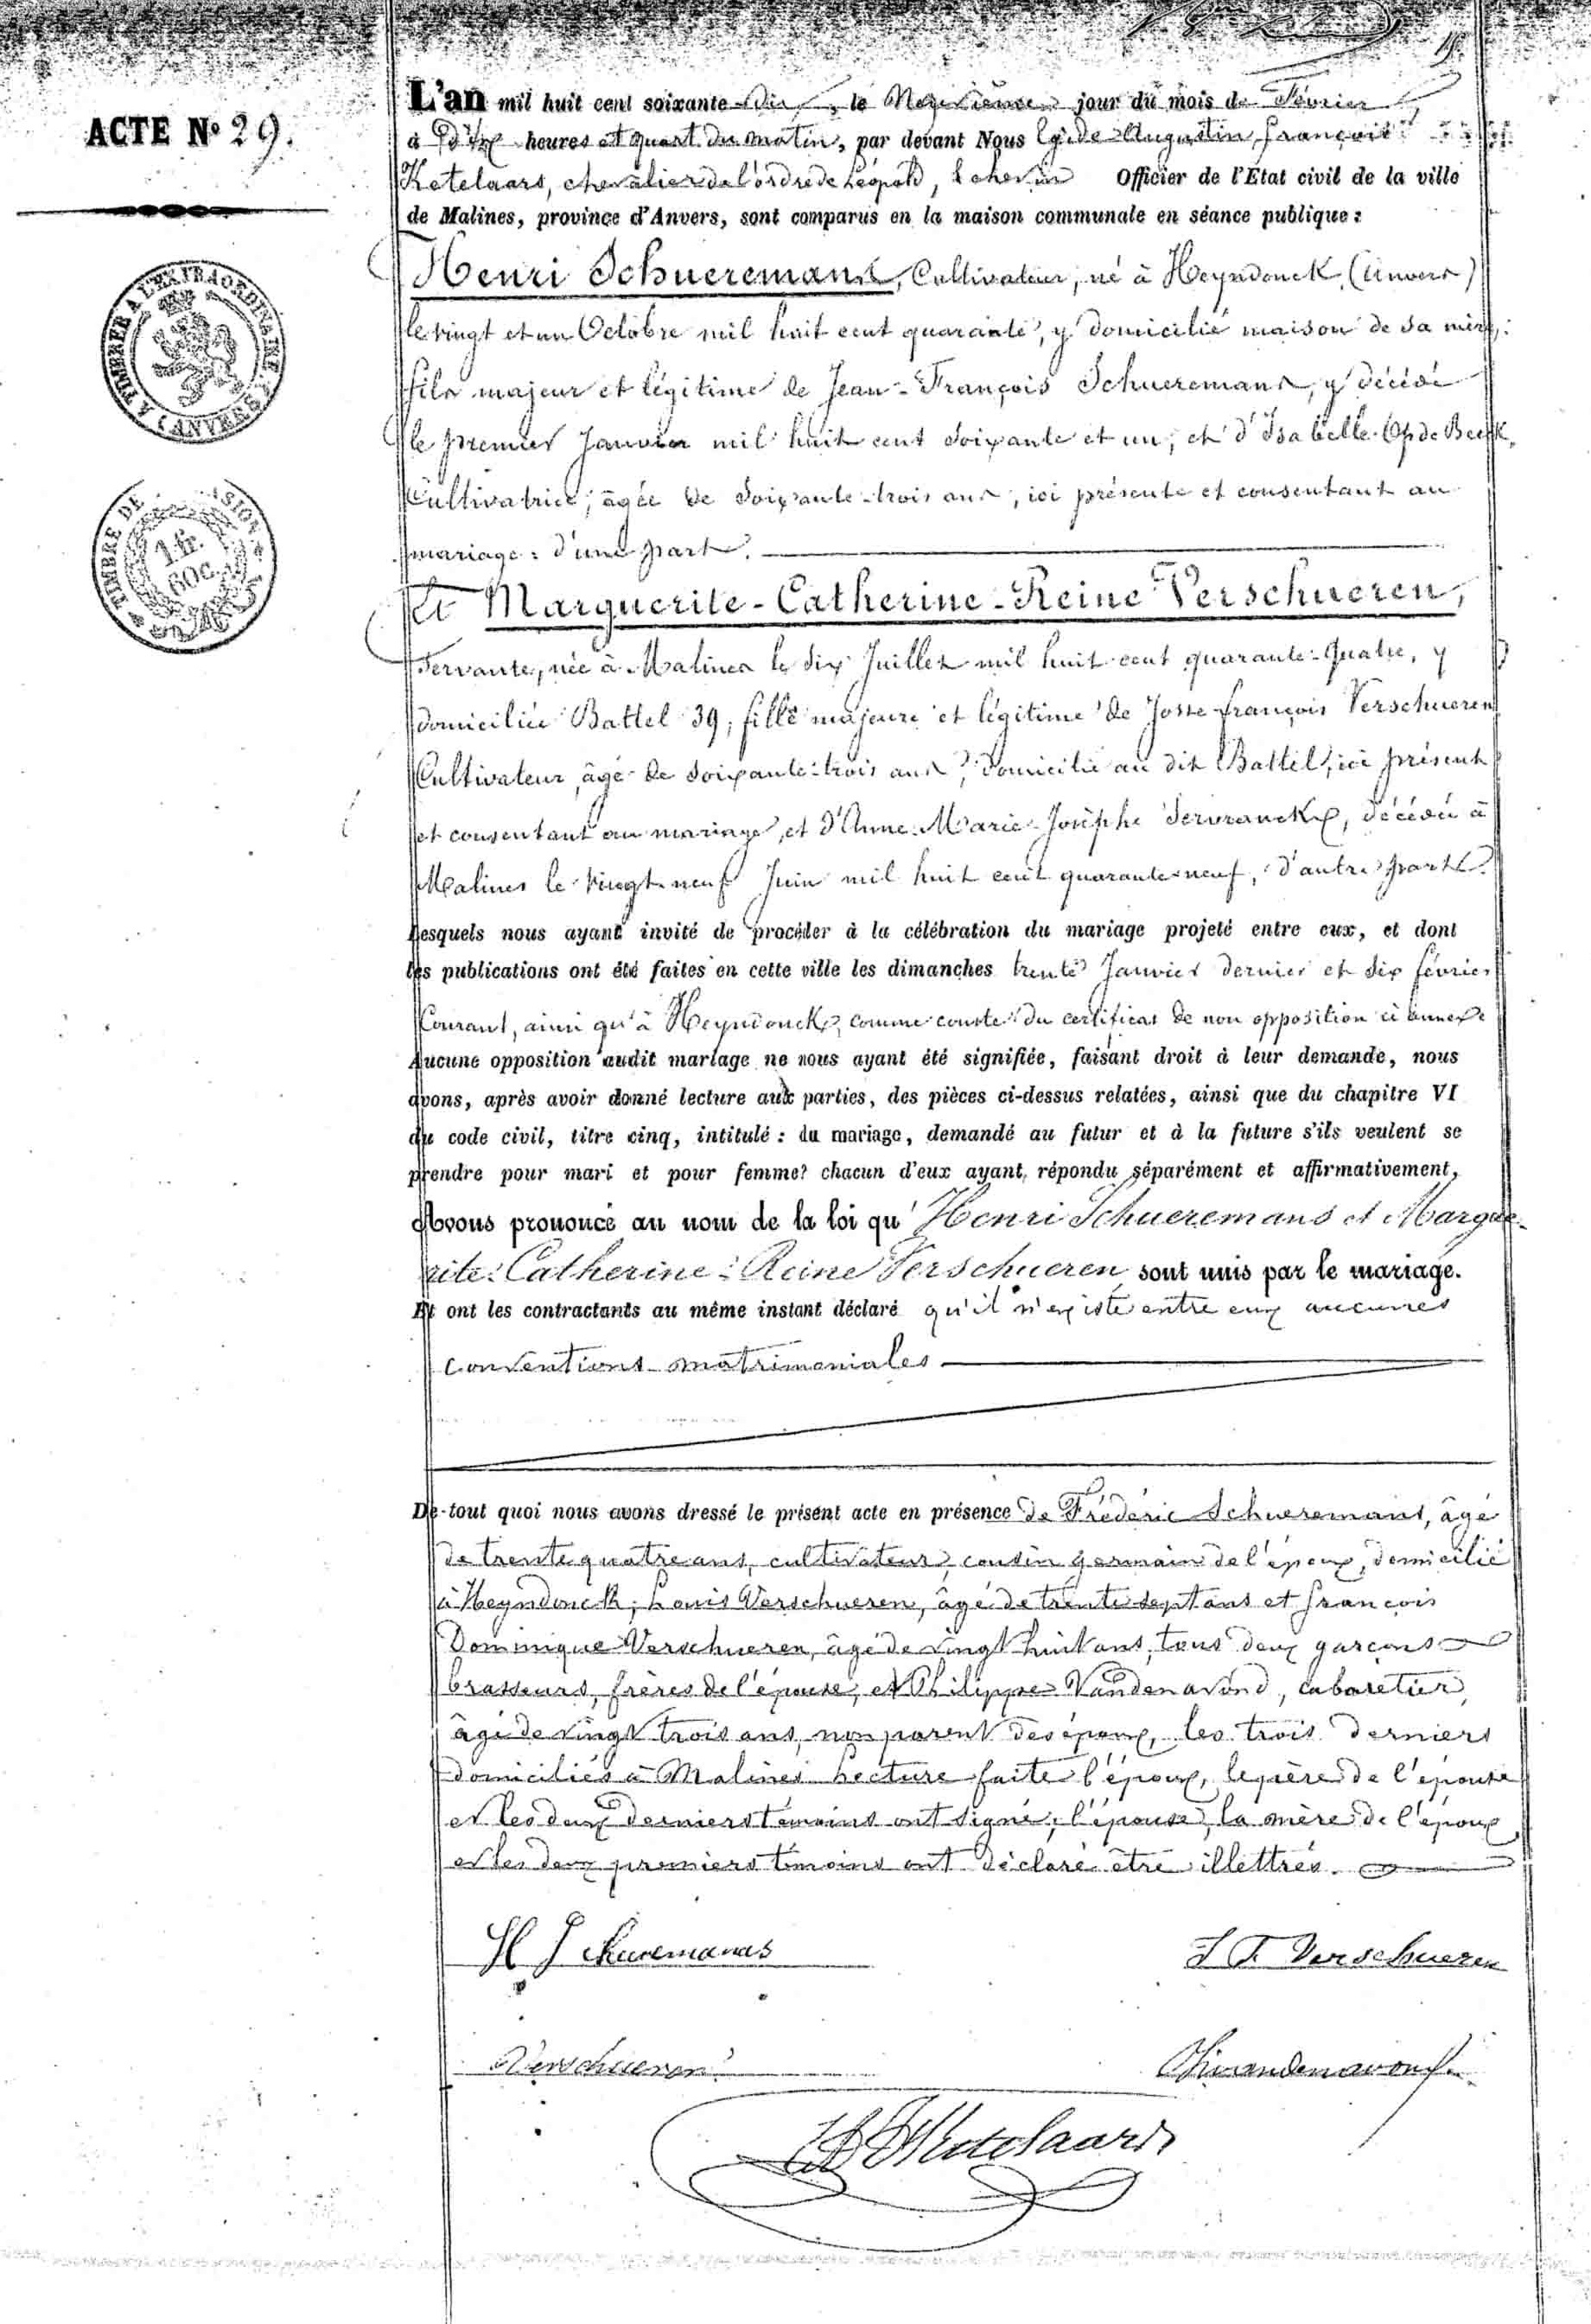 ACTE Nº 29.
A TIMBRER A L'EXTRAORDINAIRE (ANVERS)
TIMBRE DE
1 fr.
60 c.
L'an mil huit cent soixante dix, le Neuvième jour du mois de Février
à dix heures et quart du matin, par devant Nous Egide Augustin François
Ketelaars, chevalier de l'ordre de Léopold, Echevin Officier de l'État civil de la ville
de Malines, province d'Anvers, sont comparus en la maison communale en séance publique :
Henri Schueremans, Cultivateur, né à Heyndonck (Anvers)
le vingt et un Octobre mil huit cent quarante, y domicilié maison de sa mère;
fils majeur et légitime de Jean-François Schueremans, y décédé
le premier Janvier mil huit cent soixante et un, et d'Isabelle Op de Beeck,
Cultivatrice, âgée de soixante-trois ans, ici présente et consentant au
mariage : d'une part.
Et Marguerite-Catherine-Reine Verschueren,
Servante, née à Malines le six Juillet mil huit cent quarante-quatre, y
domiciliée Battel 39, fille majeure et légitime de Josse François Verschueren
Cultivateur, âgé de soixante-trois ans, domicilié au dit Battel, ici présent
et consentant au mariage, et d'Anne-Marie-Josèphe Servranckx, décédée à
Malines le vingt-neuf Juin mil huit cent quarante-neuf, d'autre part.
Lesquels nous ayant invité de procéder à la célébration du mariage projeté entre eux, et dont
les publications ont été faites en cette ville les dimanches trente Janvier dernier et six février
Courant, ainsi qu'à Heyndonck, comme conste du certificat de non opposition ci annexé
Aucune opposition audit mariage ne nous ayant été signifiée, faisant droit à leur demande, nous
avons, après avoir donné lecture aux parties, des pièces ci-dessus relatées, ainsi que du chapitre VI
du code civil, titre cinq, intitulé : du mariage, demandé au futur et à la future s'ils veulent se
prendre pour mari et pour femme? chacun d'eux ayant, répondu séparément et affirmativement,
Avons prononcé au nom de la loi qu'Henri Schueremans et Margue-
rite-Catherine-Reine Verschueren sont unis par le mariage.
Et ont les contractants au même instant déclaré qu'il n'existe entre eux aucunes
conventions matrimoniales
De tout quoi nous avons dressé le présent acte en présence de Frédéric Schueremans, âgé
de trente quatre ans, cultivateur, cousin germain de l'époux, domicilié
à Heyndonck, Louis Verschueren, âgé de trente sept ans et François
Dominique Verschueren, âgé de vingt huit ans, tous deux garçons
brasseurs, frères de l'épouse, et Philippe Vandenavond, cabaretier,
âgé de vingt trois ans, non parent des époux, les trois derniers
domiciliés à Malines. Lecture faite l'époux, le père de l'épouse
et les deux derniers témoins ont signé; l'épouse, la mère de l'époux
et les deux premiers témoins ont déclaré être illettrés.
H Schueremanas
J F Verschueren
Verschueren
Ph vandenavond
Ketelaars